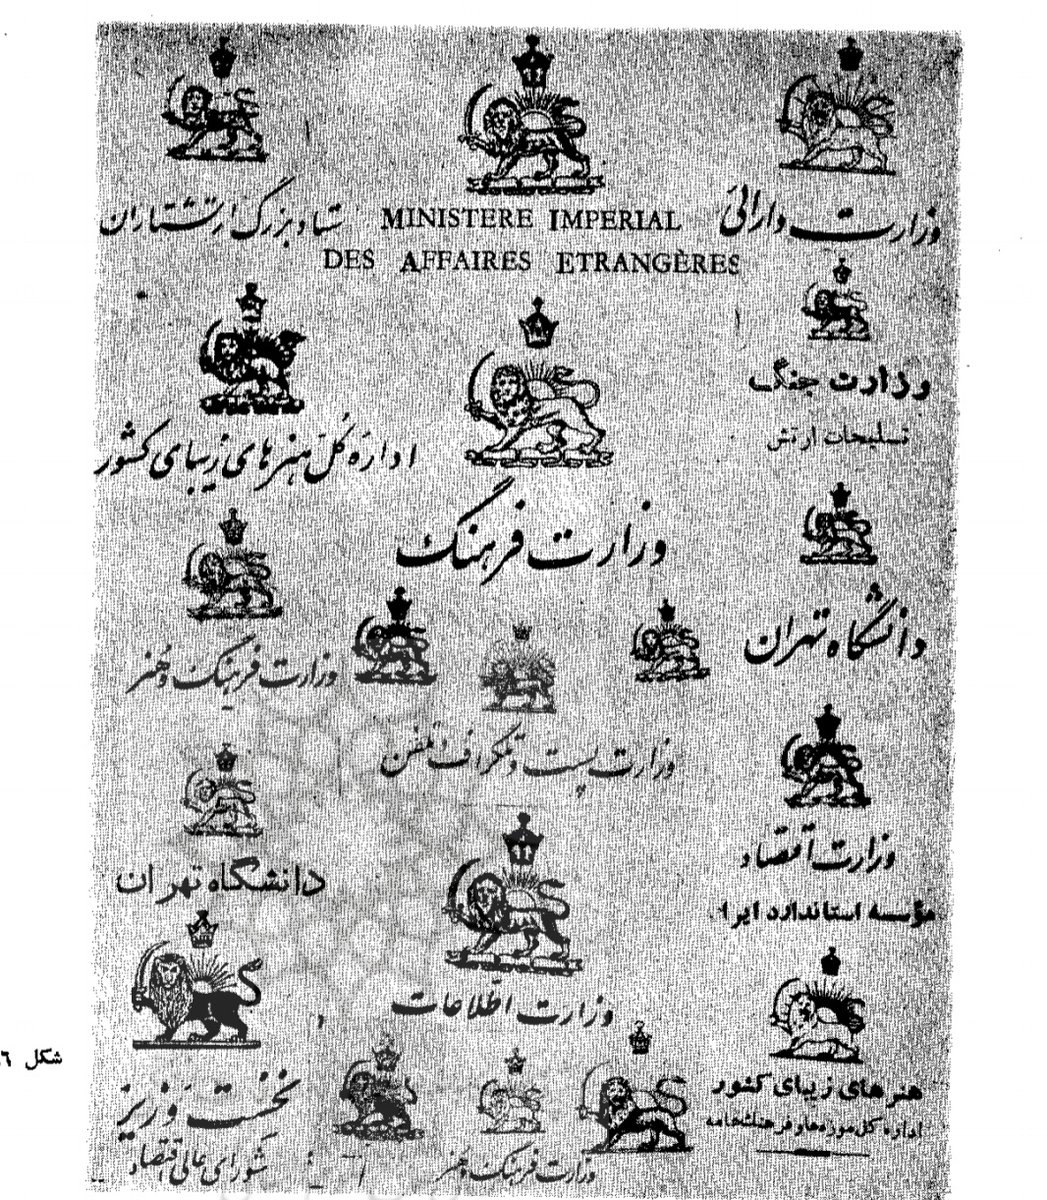 ستاد بزرگ ارتشتاران
MINISTERE IMPERIAL
DES AFFAIRES ETRANGÈRES
وزارت دارائی
وزارت جنگ
تسلیحات ارتش
اداره کل هنرهای زیبای کشور
وزارت فرهنگ
دانشگاه تهران
وزارت فرهنگ و هنر
وزارت پست و تلگراف و تلفن
وزارت اقتصاد
مؤسسه استاندارد ایرا
دانشگاه تهران
وزارت اطلاعات
هنرهای زیبای کشور
اداره کل موزه‌ها و فرهنگ‌عامه
نخست وزیر
شورای عالی اقتصاد
وزارت فرهنگ و هنر
شکل ٦